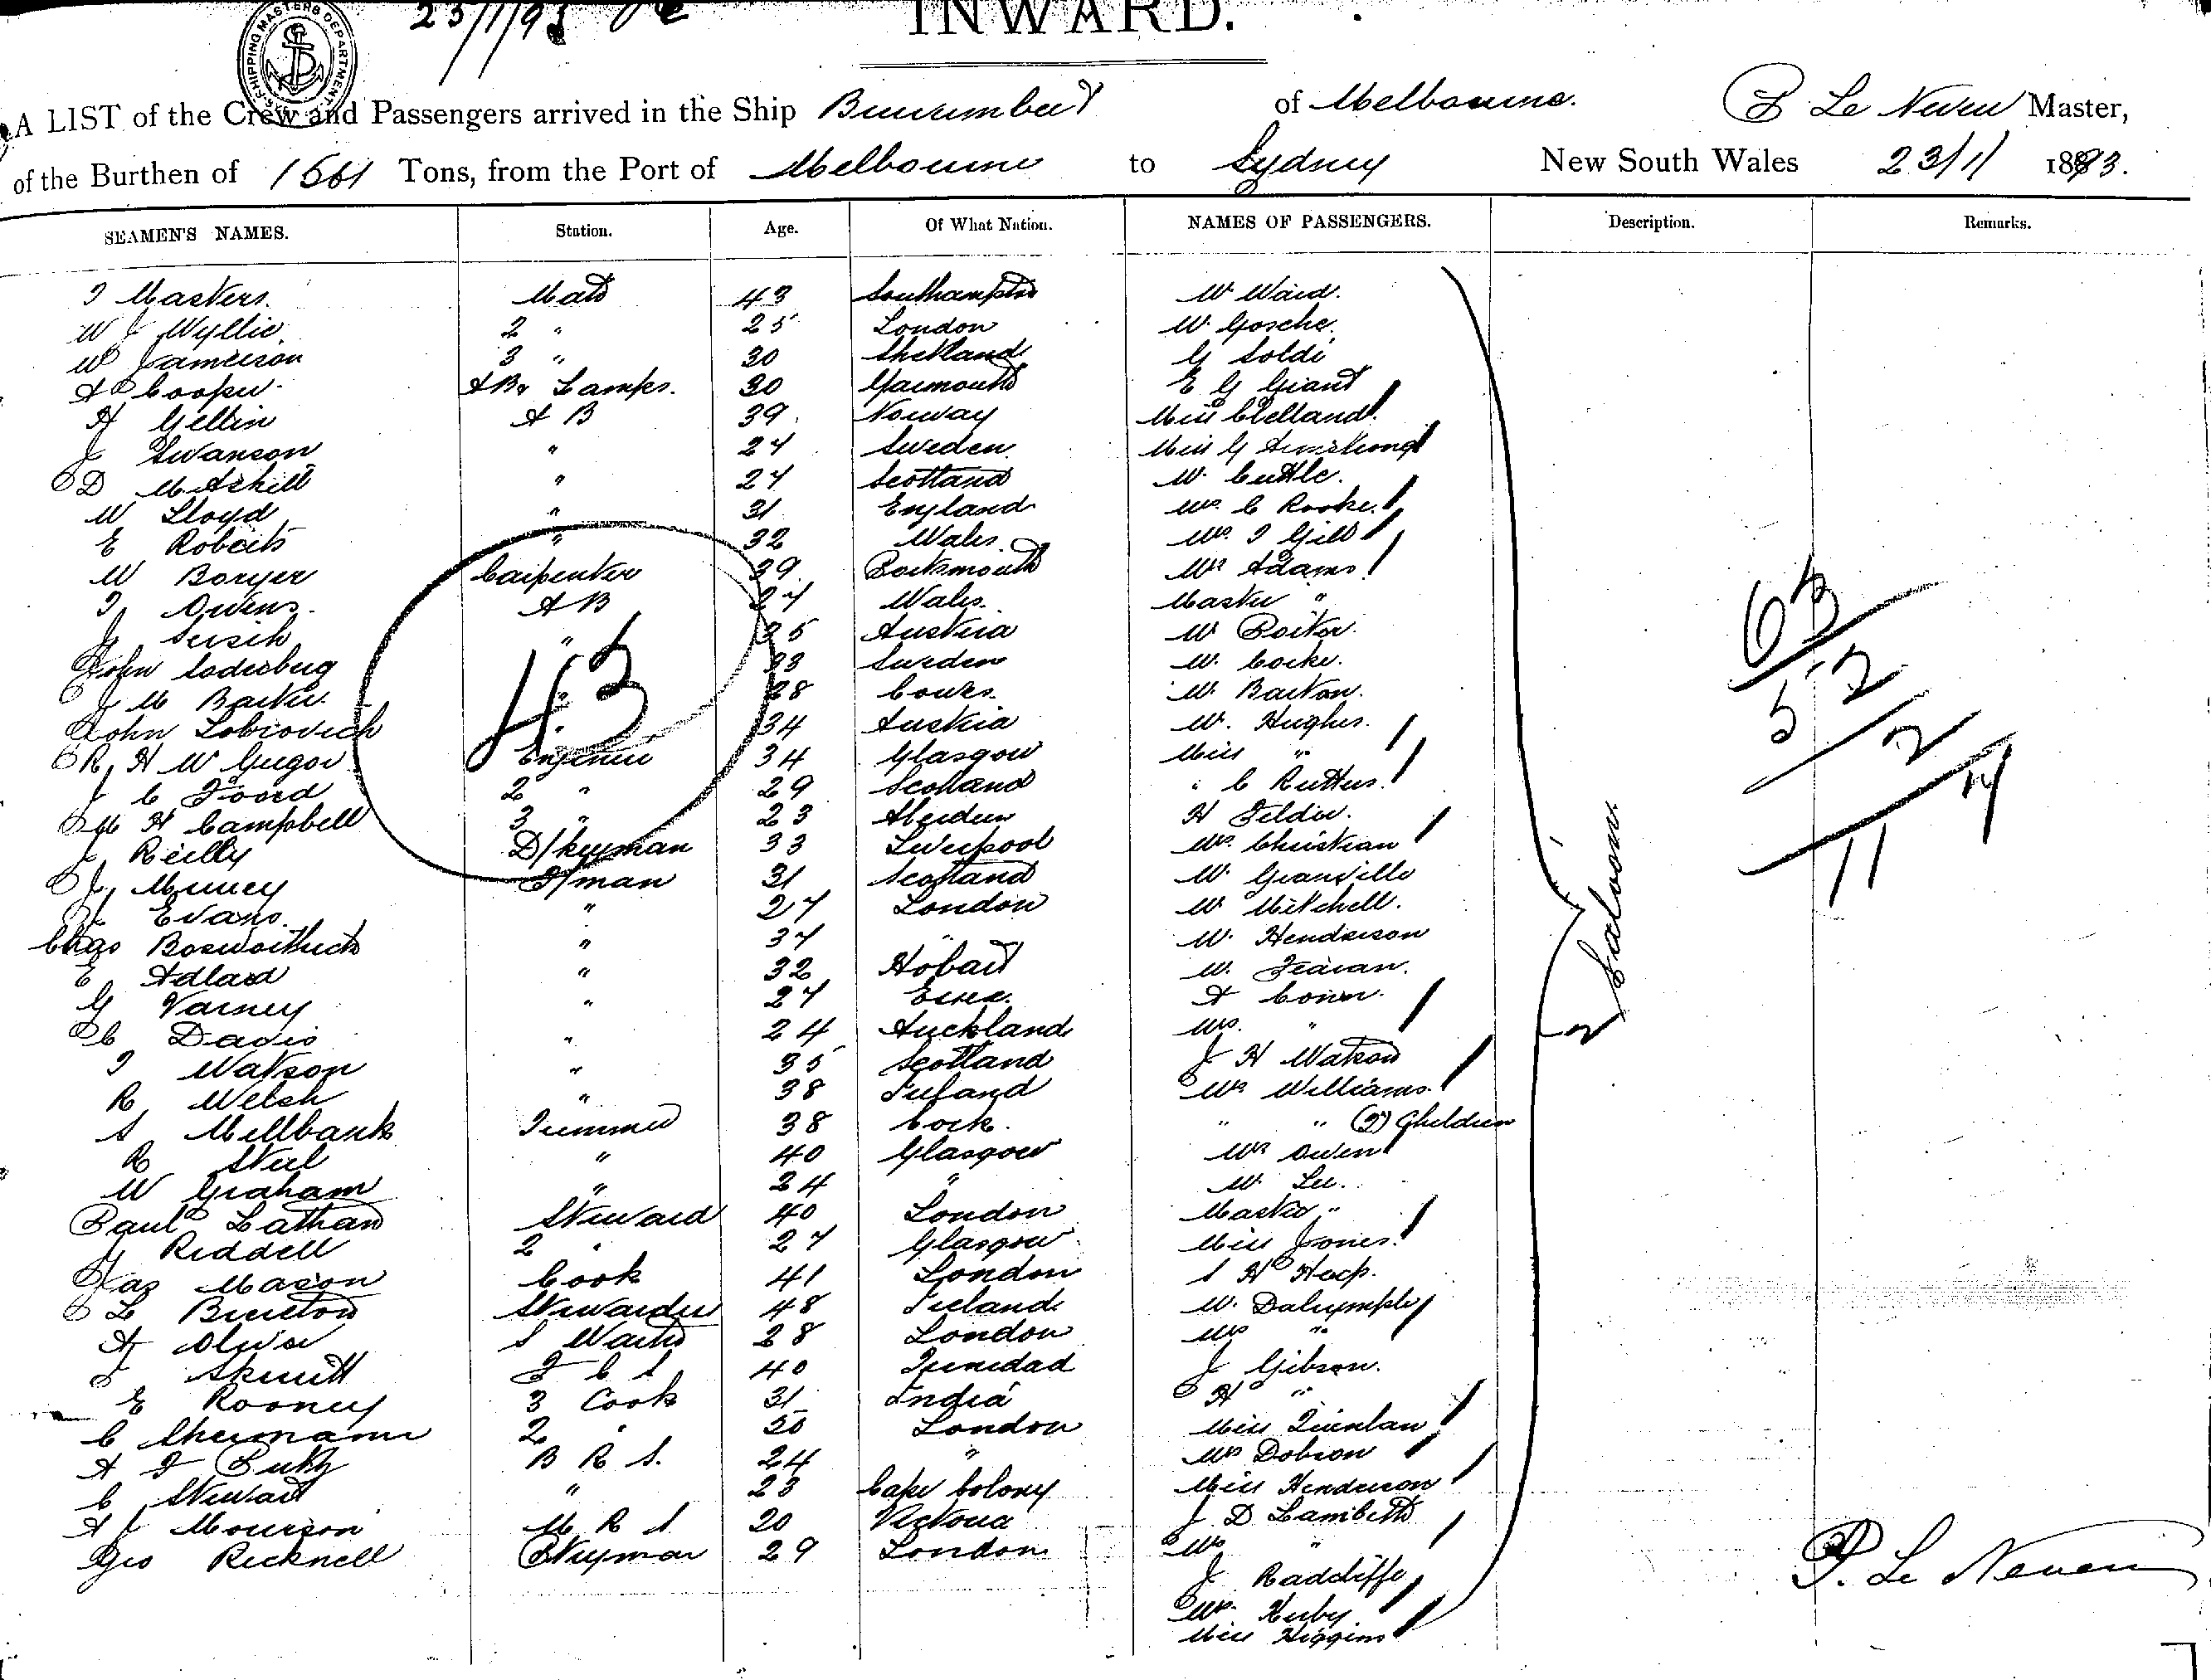 23/1/93
INWARD.
SHIPPING MASTERS DEPARTMENT
A LIST of the Crew and Passengers arrived in the Ship Burrumbeet of Melbourne. P Le Neveu Master,
of the Burthen of Tons, from the Port of Melbourne to Sydney New South Wales 23/1/ 1893.
SEAMEN'S NAMES. Station. Age. Of What Nation. NAMES OF PASSENGERS. Description. Remarks.
Masters. Mate 43 Southampton Mr Ward.
W J Wyllie. 2 " 25 London Mr. Gosche.
W Jamieson 3 " 30 Shetland G Soldi
A Cooper AB & Lamps. 30 Yarmouth E G Grant
A Gellin A B 39 Norway Miss Clelland
J Swanson " 24 Sweden Miss G Armstrong
D McAskill " 27 Scotland Mr. Cuttle.
W Lloyd " 31 England Mrs C Rooke.
E Roberts " 32 Wales Mrs. Gill
W Boryer Carpenter 39 Portsmouth Mrs Adams
Owens. A B 27 Wales. Master "
J " 35 Austria Mr Porter.
John Soderberg 33 Sweden Mr. Cocke.
J M Barker " 28 Cowes. Mr. Barton.
John Lobrovich 34 Austria Mr. Hughes.
R H McGregor Engineer 34 Glasgow Miss "
J C Foord 2 " 29 Scotland " C Ruttus.
M H Campbell 3 " 23 Aberdeen H Felder.
J Reilly D/keyman 33 Liverpool Mrs. Christian
J F/man 31 Scotland Mr. Granville
J Evans. " 27 London Mr Mitchell.
Chas " 37 " Mr. Henderson
E Adlard " 32 Hobart Mr.
G Varney " 27 Essex. A
C Davis " 24 Auckland Mrs. "
Watson " 35 Scotland J H Watson
R Welch " 38 Ireland Mrs Williams.
S Millbank Trimmer 38 Cork. " " (2) Children
R Steel " 40 Glasgow Mrs Owen
W Graham " 24 " Mr. Lee.
Paul Lathan Steward 40 London Master "
J Riddell 2 " 27 Glasgow Miss Jones.
Jas Mason Cook 41 London S H
L Stewardess 48 Ireland Mr. Dalrymple
A Oliver S Waiter 28 London Mrs "
J Skerritt F C S 40 Trinidad J Gibson.
E Rooney 3 Cook 31 India H "
C 2 " London Miss Quinlan
A B R S. 24 " Mrs Dobson
C Stewart " 23 Cape Colony Miss Henderson
A J Mourison M R S 20 Victoria J D Lambeth
Geo Ricknell 29 London Mrs "
J Radcliffe
Mrs. Kerby
Miss Higgins
43
Saloon.
63
52
2
11
P. Le Neveu